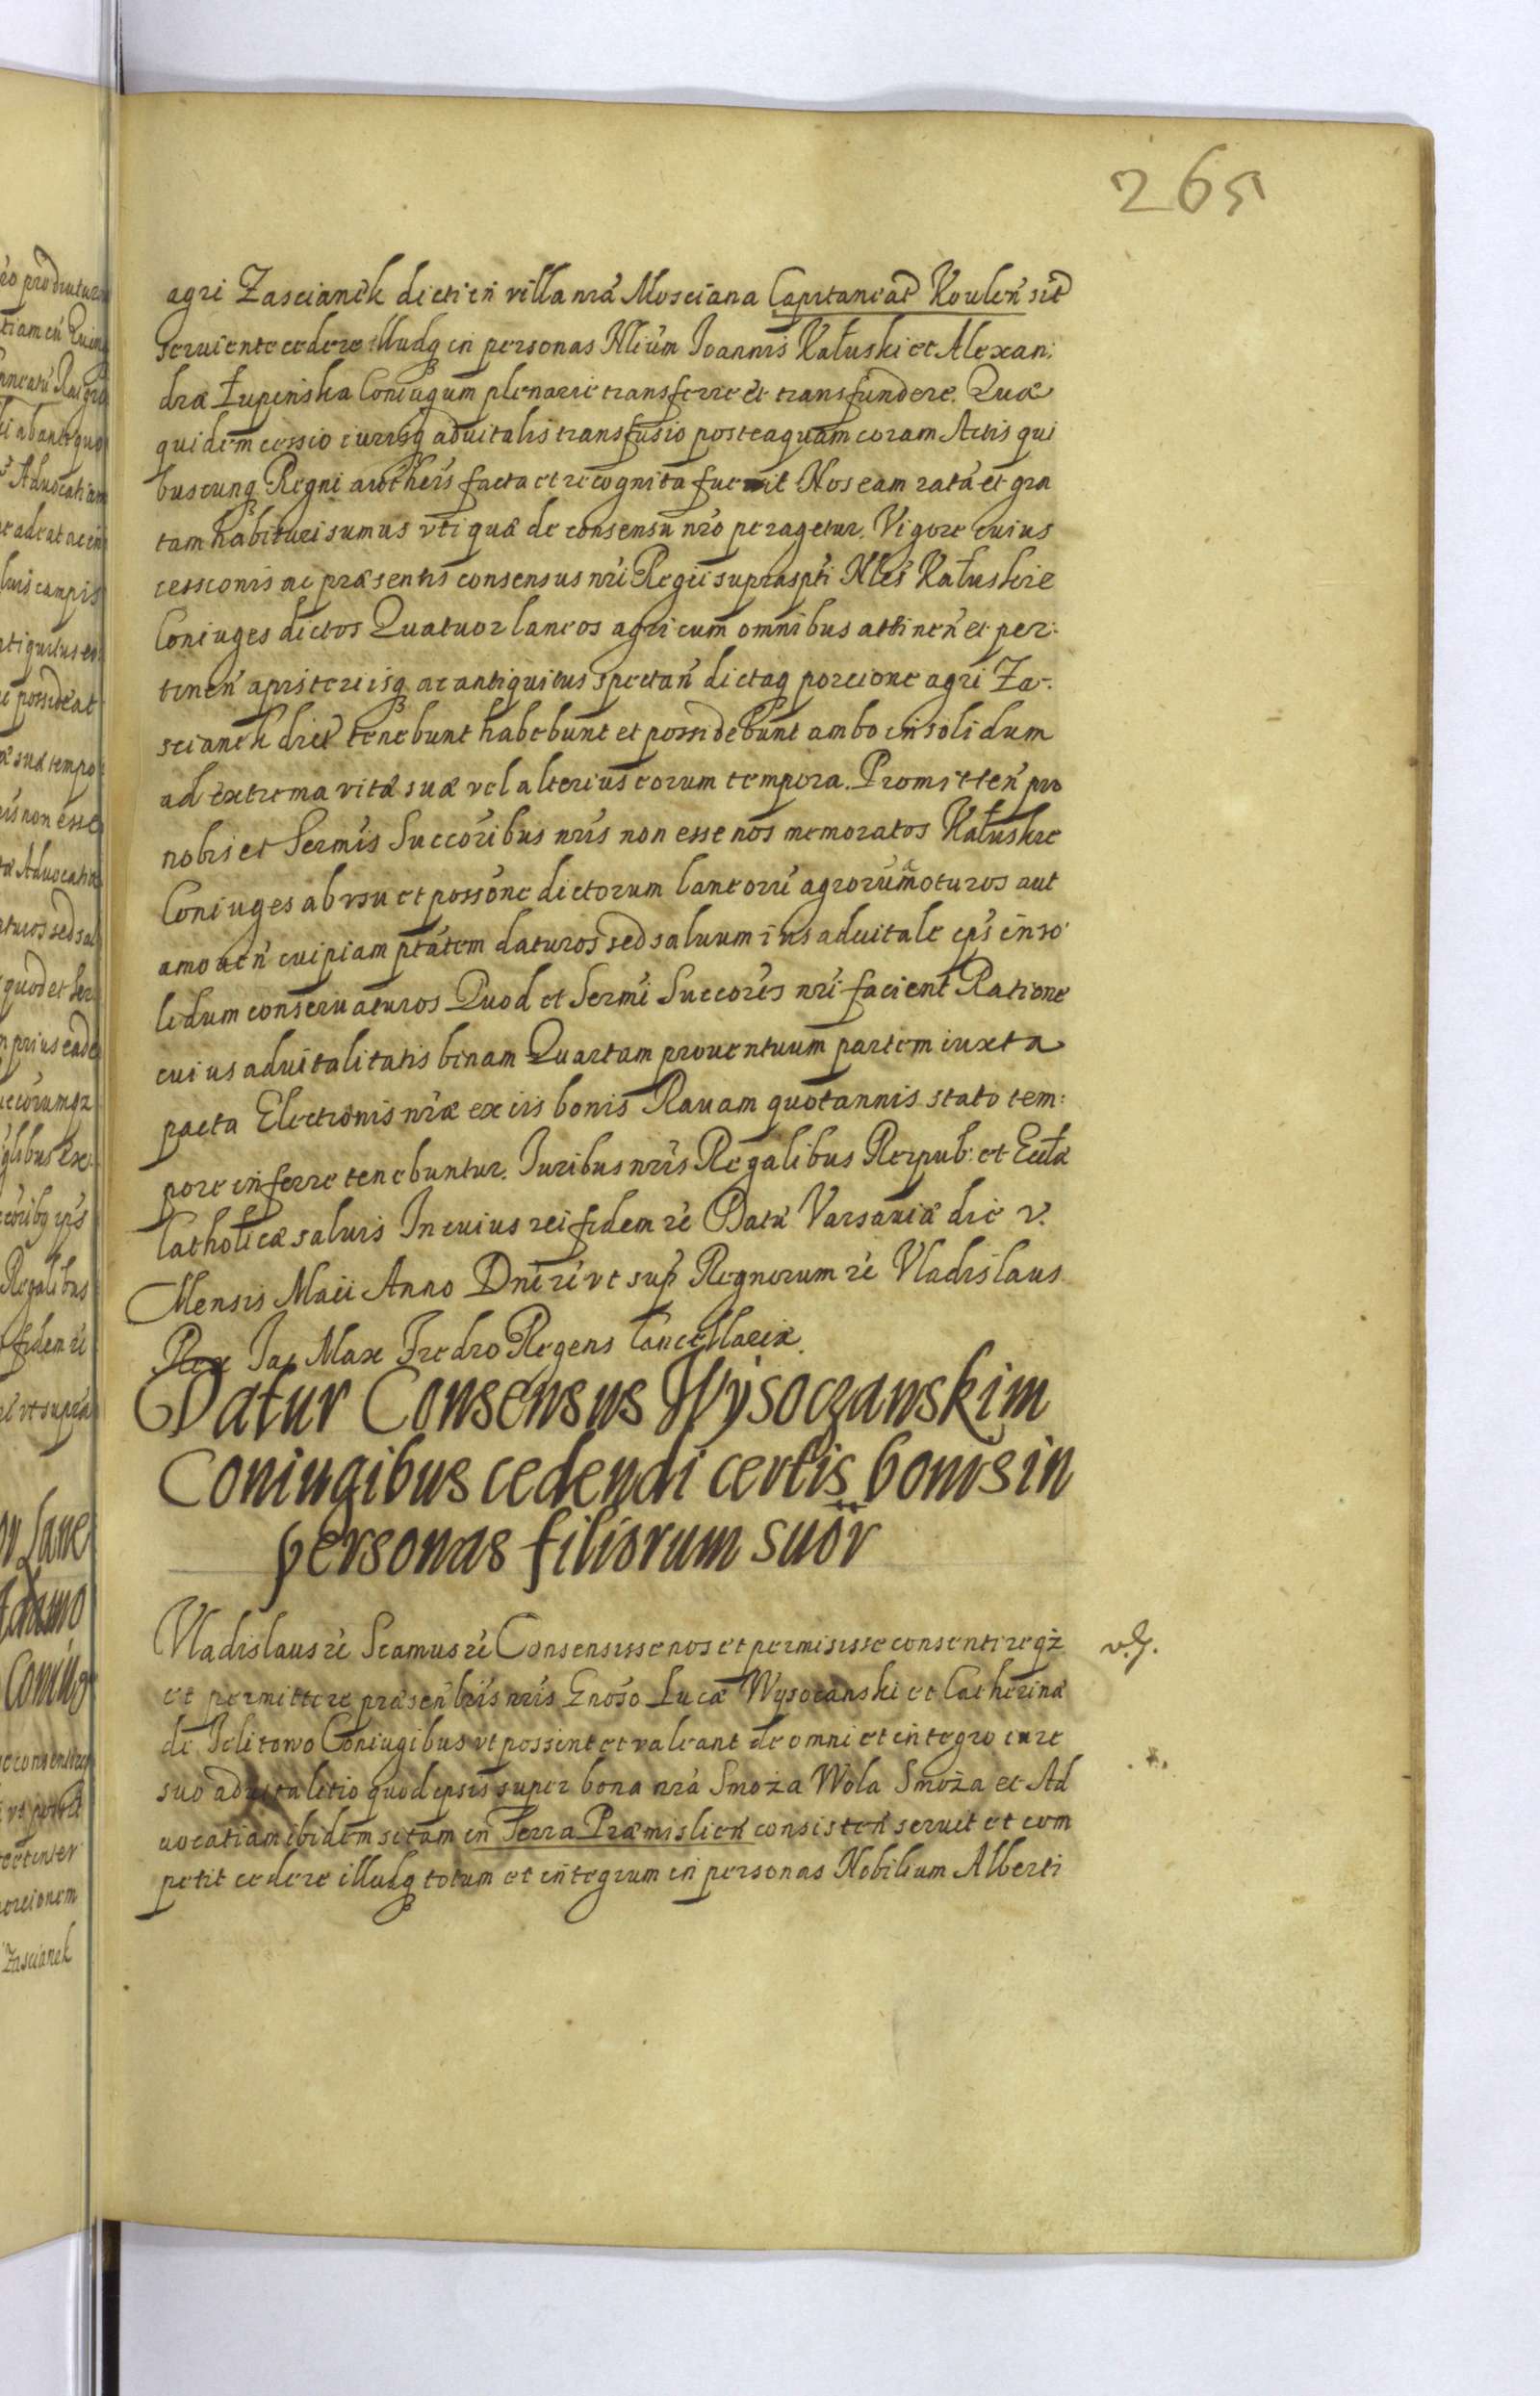 265
agri Zascianek dicti in villa nrã Mosciana Capitaneat Kowlen sit
serviente cedere illudq in personas Nlium Joannis Kałuski et Alexan:
dræ Łupinska Coniugum plenarie transferre et transfundere. Quæ
quidem cessio iurisq advitalis transfusio posteaquam coram Actis qui
buscunq Regni authcis facta et recognita fuerit Nos eam ratã et gra
tam habituri sumus uti quæ de consensu nrõ peragetur. Vigore cuius
cessionis ac præsentis consensus nri Regii suprasptï Nles Kałuskie
Coniuges dictos Quatuor laneos agri cum omnibus attinen et per:
tinen apristeriisq ac antiquitus spectan dictaq porcione agri Za-
scianek dict tenebunt habebunt et possidebunt ambo in solidum
ad extrema vitæ suæ vel alterius eorum tempora. Promitten pro
nobis et Sermis Succoribus nris non esse nos memoratos Kałuskie
Coniuges ab usu et possõne dictorum laneorũ agrorũ amoturos aut
amoven cuipiam ptãtem daturos sed salvum ius advitale eps in so
lidum conservaturos Quod et Sermi Succores nri facient Ratione
cuius advitalitatis binam Quartam proventuum partem iuxta
pacta Electionis nræ ex iis bonis Ravam quotannis stato tem:
pore inferre tenebuntur. Juribus nris Regalibus Reipub: et Eclæ
Catholicæ salvis In cuius rei fidem rẽ Datũ Varsaviæ die V.
Mensis Maii Anno Dni rẽ ut sup Regnorum rẽ Vladislaus
Rex Jac Max Fredro Regens Cancellariæ.
Datur Consensus Wysoczanskim
Coniugibus cedendi certis bonis in
personas filiorum suor
Vladislaus rẽ Scamus rẽ Consensisse nos et permisisse consentireqz
et permittere præsen lris nris Gnoso Lucæ Wysocanski et Catherinæ
de Jelitowo Coniugibus ut possint et valeant de omni et integro iure
suo advitalitio quod ipsis super bona nrã Smoża Wola Smoża et Ad
vocatiam ibidem sitam in Terra Præmislien consisten servit et com
petit cedere illudq totum et integrum in personas Nobilium Alberti